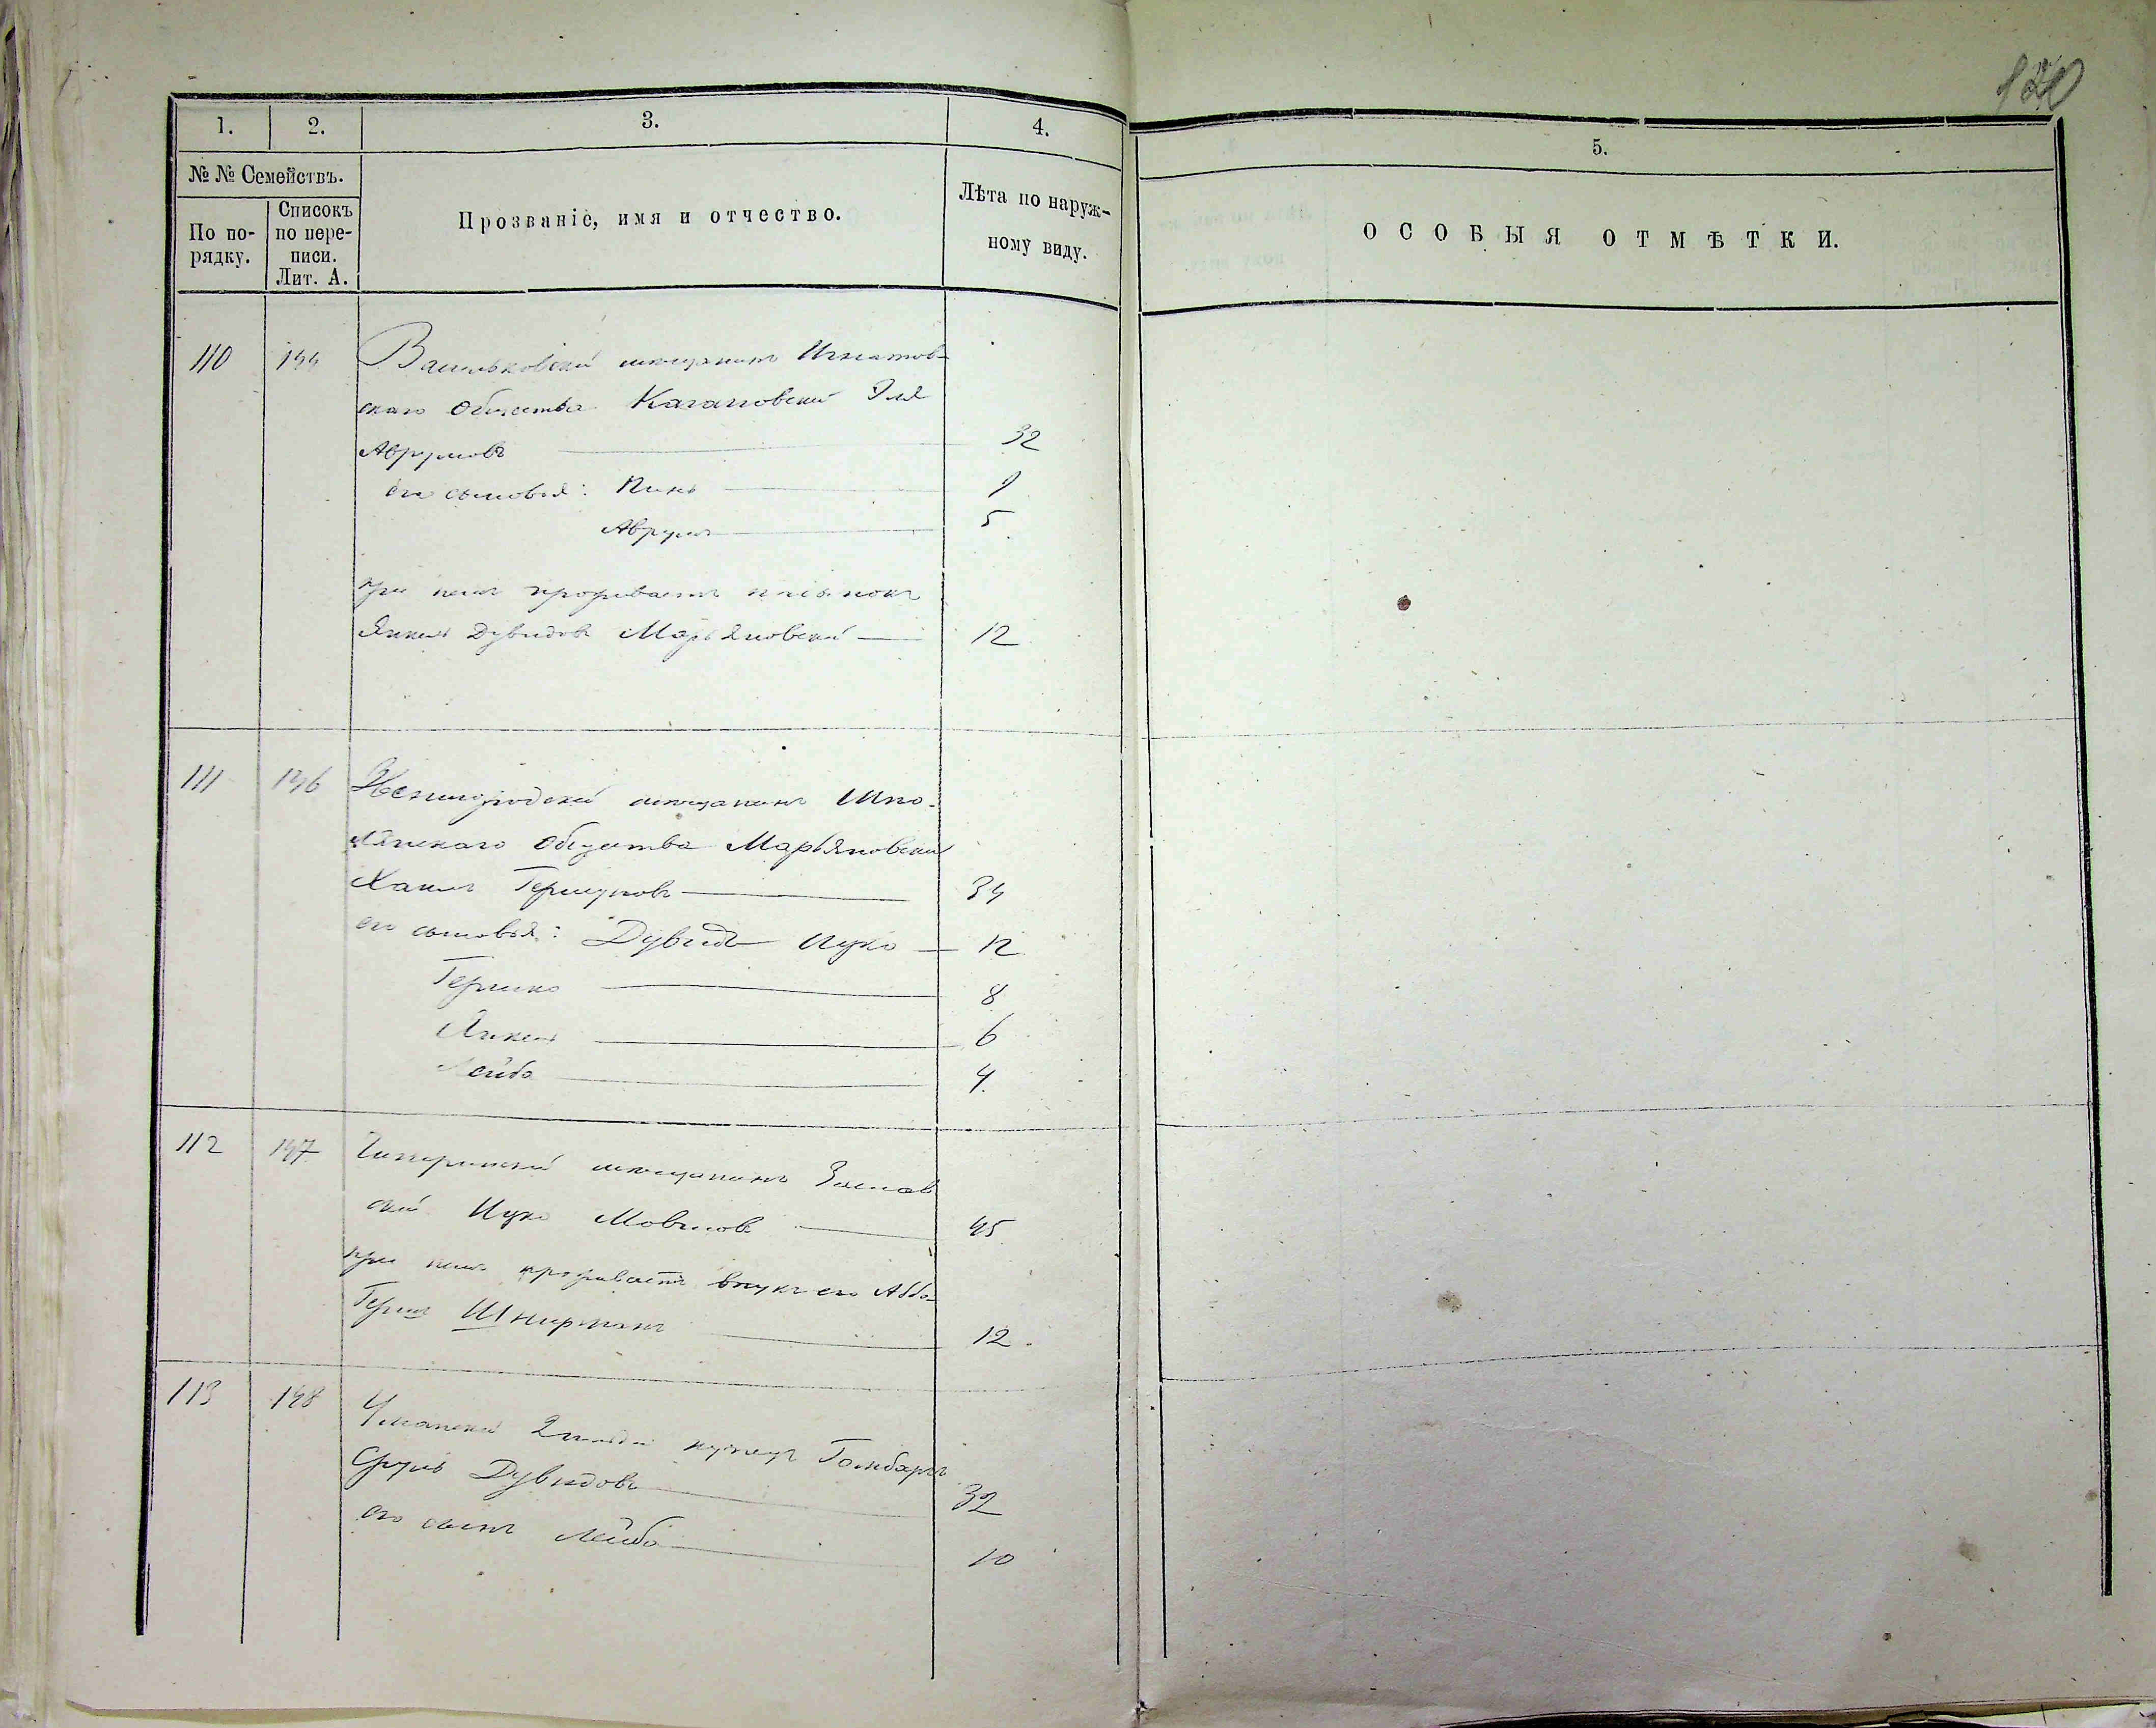 120
1. 2. 3. 4. 5.
№ № Семействъ.
По по-
рядку.
Списокъ
по пере-
писи.
Лит. А.
Прозваніе, имя и отчество.
Лѣта по наруж-
ному виду.
ОСОБЫЯ ОТМѢТКИ.
110 144 Васильковскій мѣщанинъ Игнатов-
скаго общества Кагановскій Эля
Аврумовъ 32
его сыновья: Пинь 9
Аврумъ 5
При немъ проживаетъ
Янкель Дувидовъ Марьяновскій 12
111 146 Звенигородскій мѣщанинъ Шпо-
лянскаго общества Марьяновскій
Хаимъ Гершуновъ 34
его сыновья: Дувидъ Ицко 12
Гершко 8
Янкель 6
Лейба 4
112 147 Чигиринскій мѣщанинъ Заслав
скій Ицко Мовшовъ 45
при немъ проживаетъ внукъ его Абба-
Гершъ Шнирманъ 12
113 148 Уманскій 2 гильдіи купецъ Гомбаргъ
Сруль Дувидовъ 32
его сынъ Лейба 10